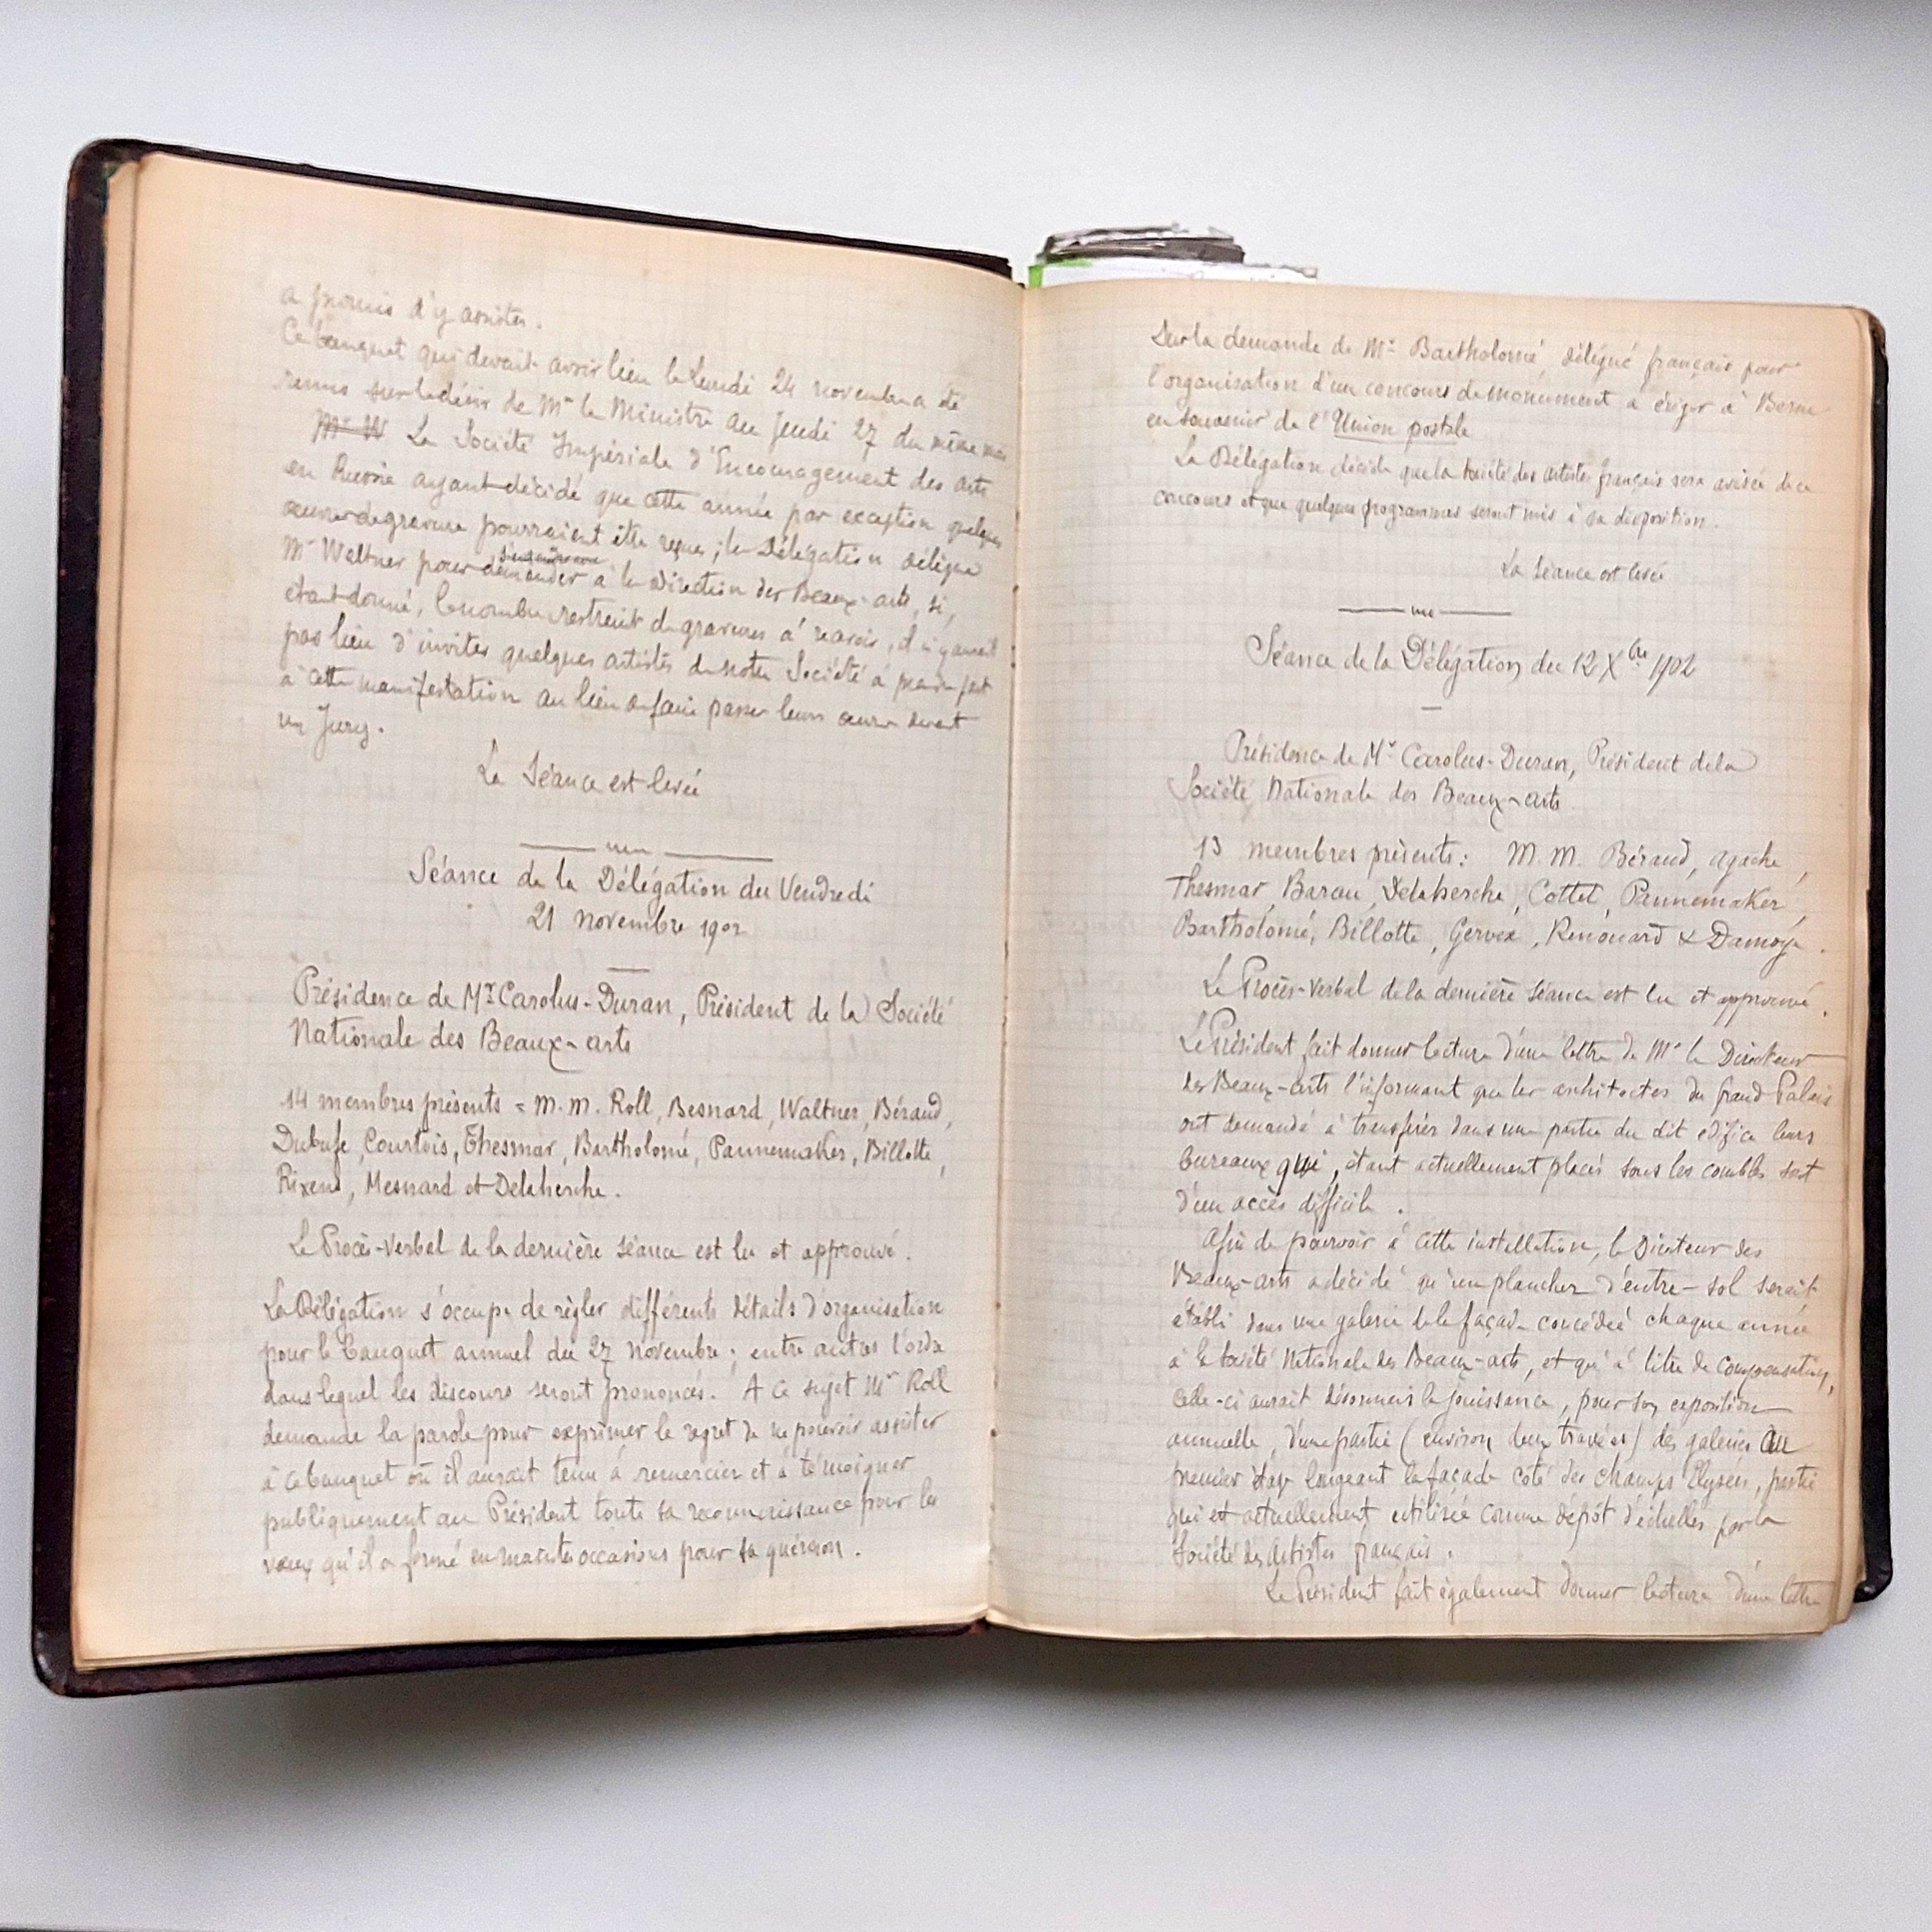 a promis d'y assister.
Ce banquet qui devait avoir lieu le Lundi 24 novembre a été
remis sur le désir de Mr le Ministre au Jeudi 27 du même mois
Mr W La Société Impériale d'Encouragement des arts
en Russie ayant décidé que cette année par exception quelques
œuvres de gravure pourraient être reçues ; la Délégation délègue
Mr Waltner pour demander à la Direction des Beaux-arts, si,
étant donné, le nombre restreint de graveurs à réunir, il n'y aurait
pas lieu d'inviter quelques artistes de notre Société à prendre part
à cette manifestation au lieu de faire passer leurs œuvres devant
un Jury.
La Séance est levée
Séance de la Délégation du Vendredi
21 novembre 1902
Présidence de Mr Carolus-Duran, Président de la Société
Nationale des Beaux-arts
14 membres présents = M.M. Roll, Besnard, Waltner, Béraud,
Dubufe, Courtois, Thesmar, Bartholomé, Pannemaker, Billotte,
Rixens, Mesnard et Delaherche.
Le Procès-Verbal de la dernière séance est lu et approuvé.
La Délégation s'occupe de règler différents détails d'organisation
pour le banquet annuel du 27 novembre ; entre autres l'ordre
dans lequel les discours seront prononcés. A ce sujet Mr Roll
demande la parole pour exprimer le regret de ne pouvoir assister
à ce banquet où il aurait tenu à remercier et à témoigner
publiquement au Président toute sa reconnaissance pour les
vœux qu'il a formé en maintes occasions pour sa guérison.
Sur la demande de Mr Bartholomé, délégué français pour
l'organisation d'un concours de monument à ériger à Berne
en souvenir de l'Union postale
La Délégation décide que la Société des artistes français sera avisée de ce
concours et que quelques programmes seront mis à sa disposition.
La Séance est levée
Séance de la Délégation du 12 Xbre 1902
Présidence de Mr Carolus-Duran, Président de la
Société Nationale des Beaux-arts
13 membres présents : M.M. Béraud, Agache,
Thesmar, Barau, Delaherche, Cottet, Pannemaker,
Bartholomé, Billotte, Gervex, Renouard & Damoye.
Le Procès-Verbal de la dernière séance est lu et approuvé.
Le Président fait donner lecture d'une lettre de Mr le Directeur
des Beaux-arts l'informant que les architectes du Grand Palais
ont demandé à transférer dans une partie du dit édifice leurs
bureaux qui, étant actuellement placés sous les combles sont
d'un accès difficile.
Afin de pourvoir à cette installation, le Directeur des
Beaux-arts a décidé qu'un plancher d'entre-sol serait
établi dans une galerie de la façade concédée chaque année
à la Société Nationale des Beaux-arts, et qu'à titre de compensation,
celle-ci aurait désormais la jouissance, pour son exposition
annuelle, d'une partie (environ deux travées) des galeries au
premier étage longeant la façade côté des Champs Elysées, partie
qui est actuellement utilisée comme dépôt d'échelles par la
Société des Artistes français.
Le Président fait également donner lecture d'une lettre